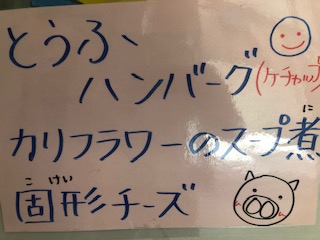 とうふ、
ハンバーグ(ケチャップ)
カリフラワーのスープ煮に
固形チーズ
こ けい